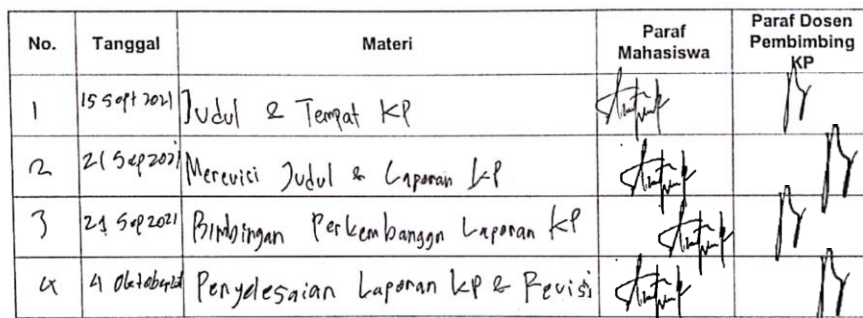 No. Tanggal Materi Paraf Mahasiswa Paraf Dosen Pembimbing KP
1 15 Sept 2021 Judul & Tempat KP
2 21 Sep 2021 Merevisi Judul & Laporan KP
3 Sep 2021 Bimbingan Perkembangan Laporan KP
4 4 Oktober Penyelesaian Laporan KP & Revisi